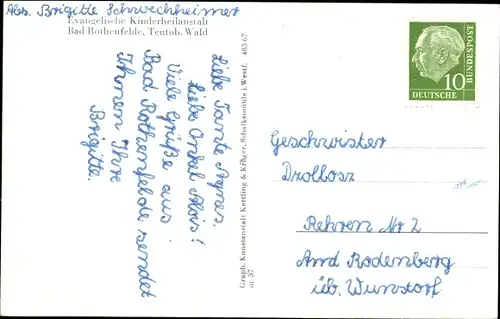 Abs. Brigitte Schwechheimer
Evangelische Kinderheilanstalt
Bad Rothenfelde, Teutob. Wald
483/67
Liebe Tante Agnes,
liebe Onkel Alois!
Viele Grüße aus
Bad Rothenfelde sendet
Ihnen Ihre
Brigitte.
Graph. Kunstanstalt Kettling & Krüger, Schalksmühle i. Westf.
m 57
DEUTSCHE
BUNDESPOST
10
Geschwister
Drollosz
Rehren Nr 2
Amd Rodenberg
üb. Wunstorf